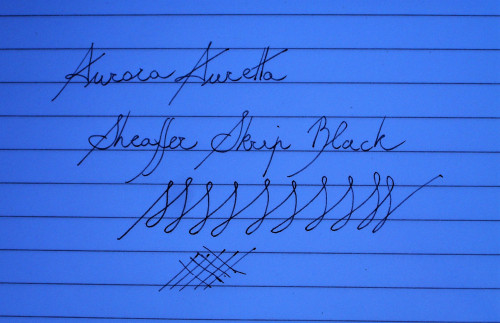 Aurora Auretta
Sheaffer Skrip Black